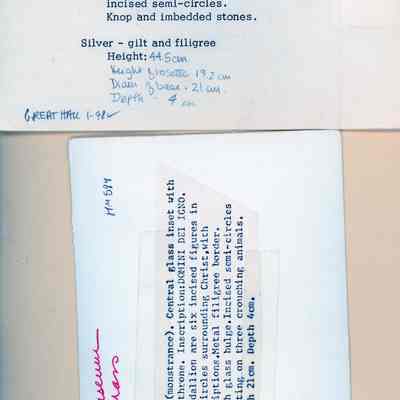 incised semi-circles.
Knop and imbedded stones.
Silver - gilt and filigree
Height: 44.5cm
Height of rosette 19.2 cm
Diam. of base - 21 cm.
Depth - 4 cm
GREAT HALL 1-92
HM 594
(monstrance). Central glass inset with
throne. Inscription:DOMINI DEI IGNO.
dallion are six incised figures in
ircles surrounding Christ,with
iptions.Metal filigree border.
h glass bulge.Incised semi-circles
ting on three crouching animals.
h 21cm. Depth 4cm.